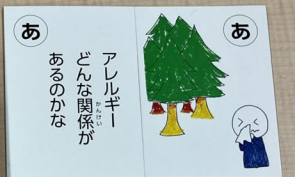 あ
アレルギー
どんな関係が
かんけい
あるのかな
あ